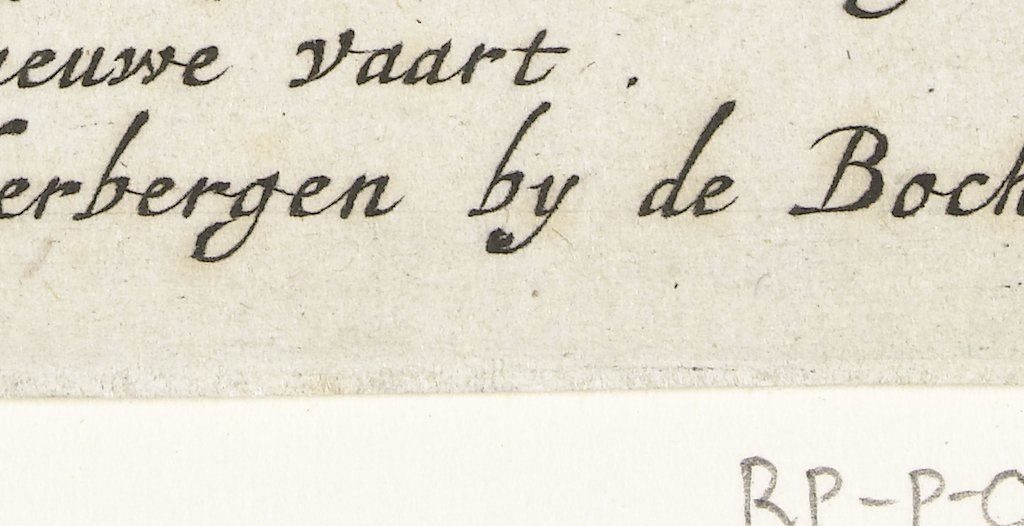 ieuwe vaart.
erbergen by de Boch
RP-P-O